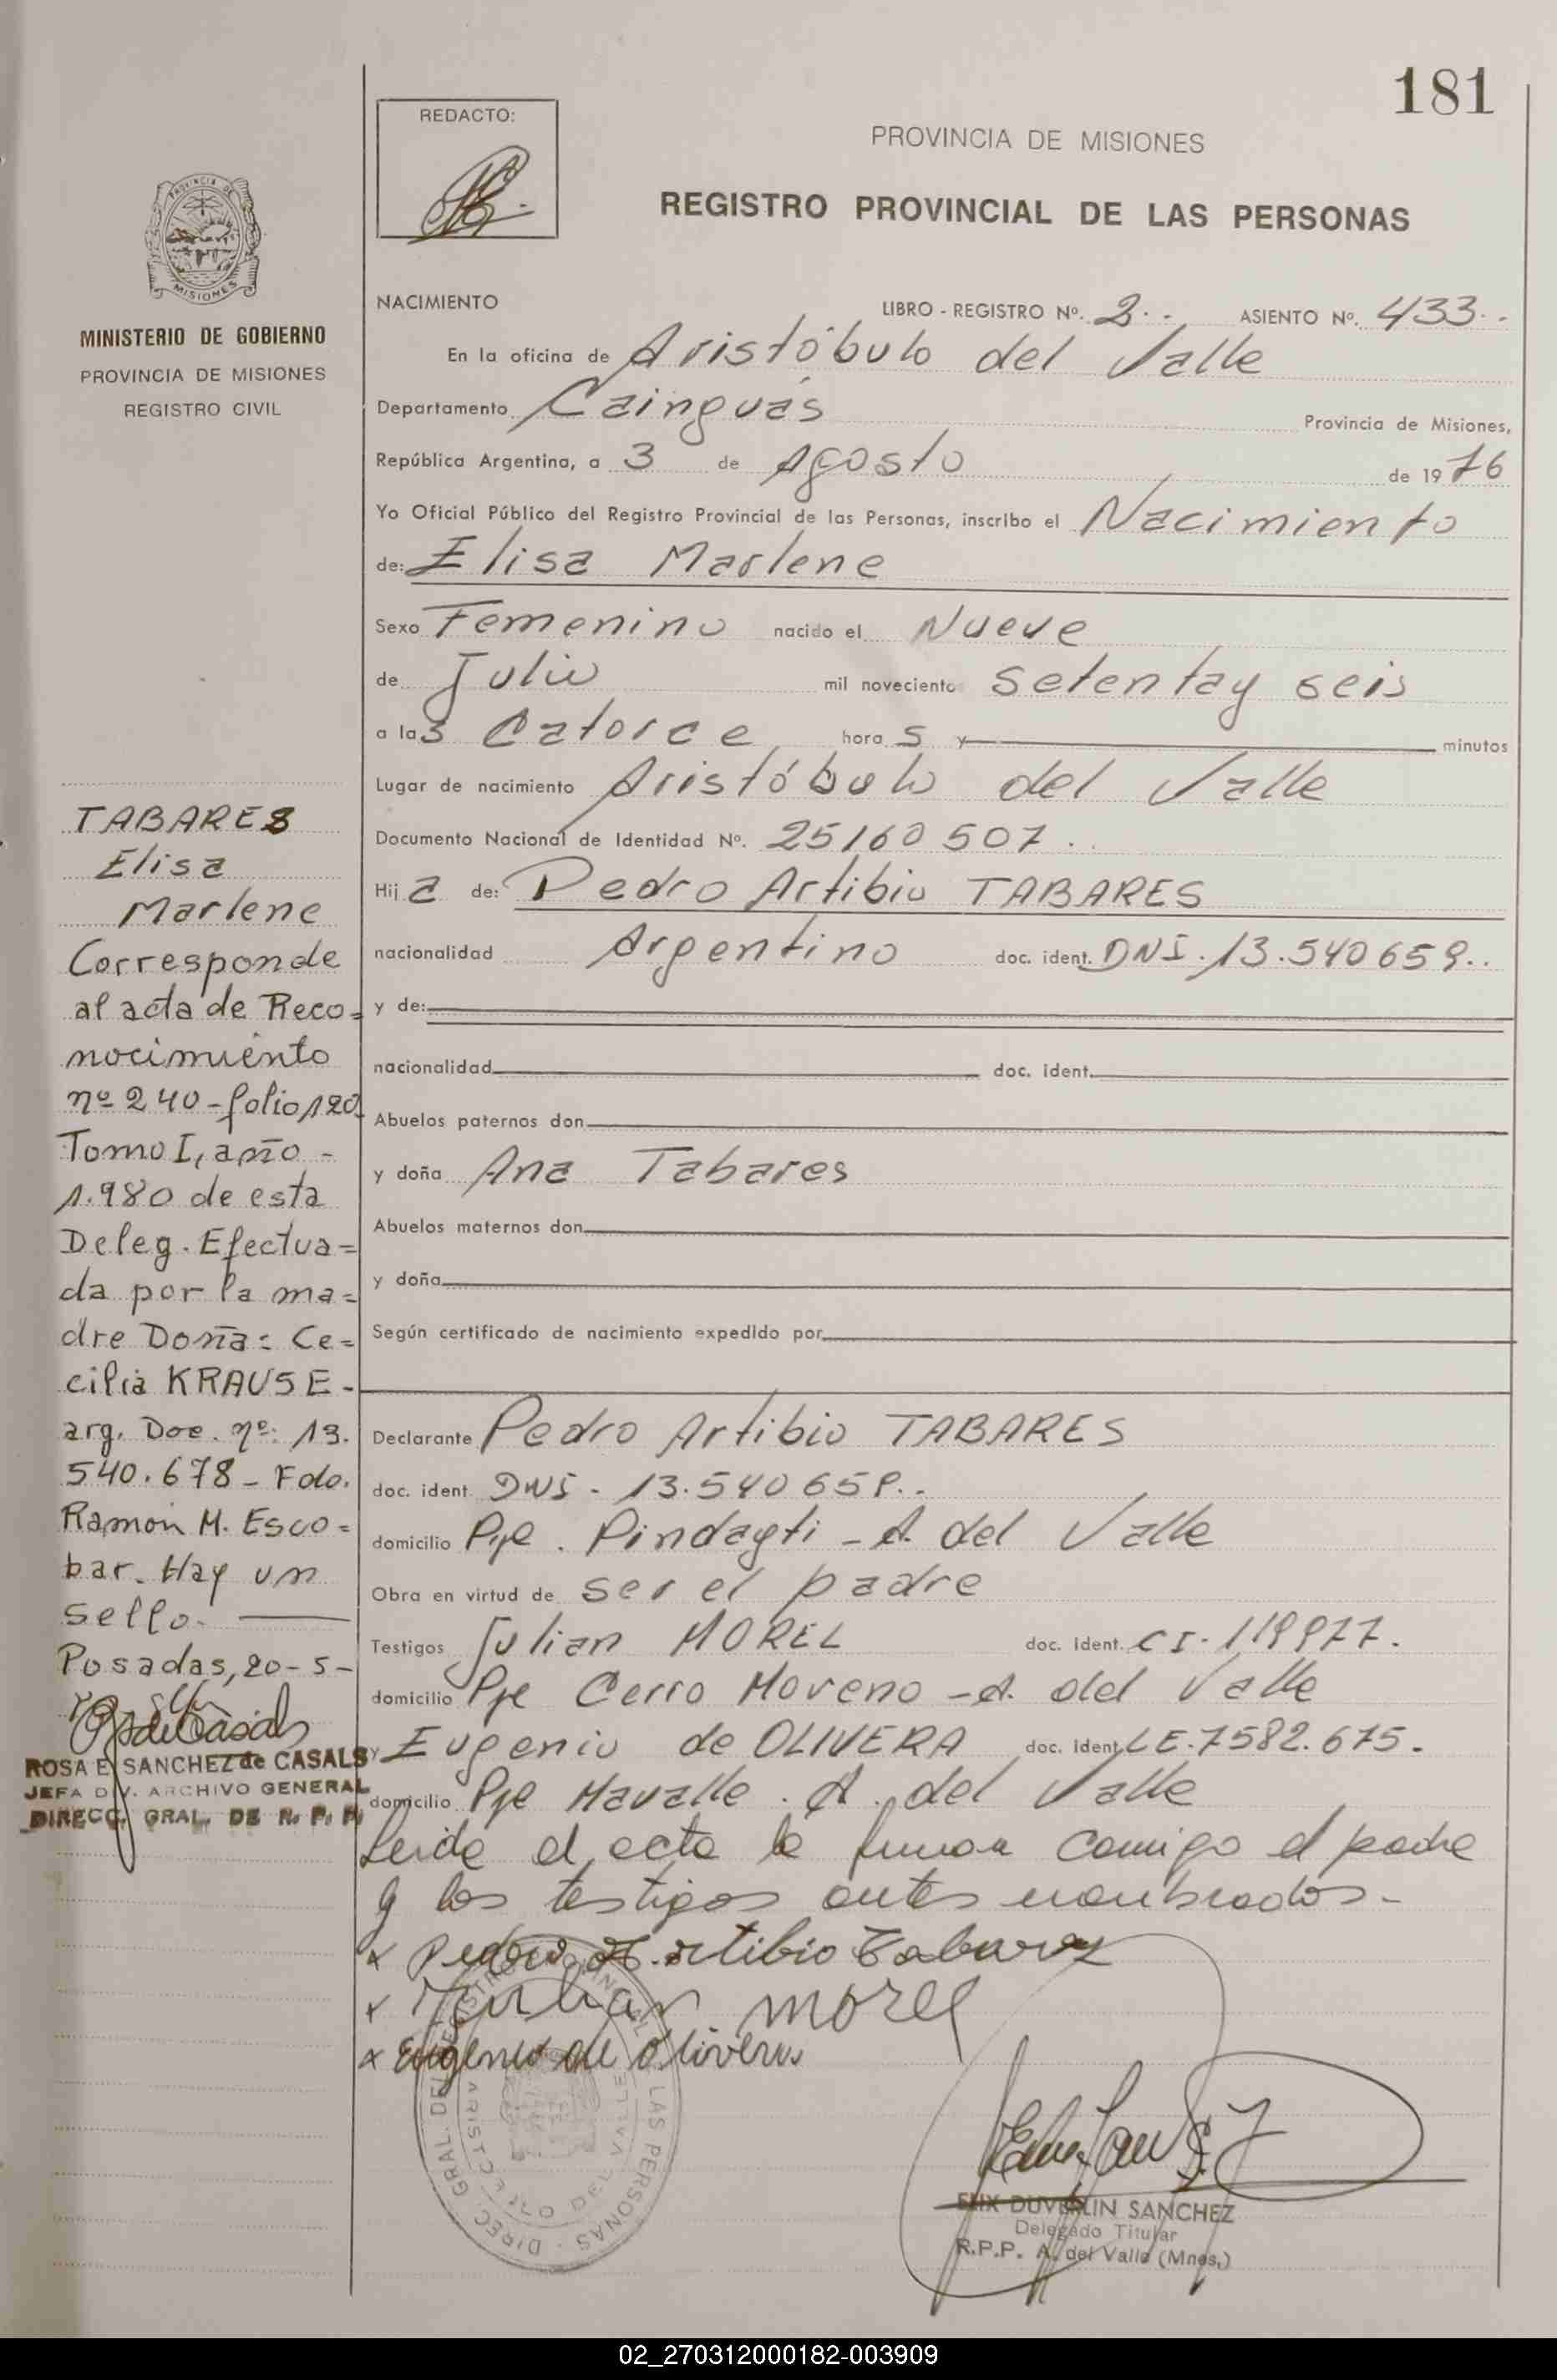 181
REDACTO:
PROVINCIA DE MISIONES
REGISTRO PROVINCIAL DE LAS PERSONAS
PROVINCIA DE
MISIONES
MINISTERIO DE GOBIERNO
PROVINCIA DE MISIONES
REGISTRO CIVIL
NACIMIENTO LIBRO - REGISTRO Nº. 2.. ASIENTO Nº. 433..
En la oficina de Aristóbulo del Valle
Departamento Cainguás Provincia de Misiones,
República Argentina, a 3 de Agosto de 1976
Yo Oficial Público del Registro Provincial de las Personas, inscribo el Nacimiento
de: Elisa Marlene
Sexo Femenino nacido el Nueve
de Julio mil noveciento setentay seis
a las Catorce hora s y minutos
Lugar de nacimiento Aristóbulo del Valle
Documento Nacional de Identidad Nº. 25160507..
Hij a de: Pedro Artibio TABARES
nacionalidad Argentino doc. ident. DNI. 13.540659..
y de:
nacionalidad doc. ident.
Abuelos paternos don
y doña Ana Tabares
Abuelos maternos don
y doña
Según certificado de nacimiento expedido por
Declarante Pedro Artibio TABARES
doc. ident. DNI - 13.540659..
domicilio Pje. Pindayti - A. del Valle
Obra en virtud de ser el padre
Testigos Julian MOREL doc. ident. CI. 119977.
domicilio Pje Cerro Moreno - A. del Valle
y Eugenio de OLIVERA doc. ident. LE. 7582.675.
domicilio Pje Mavalle. A. del Valle
Leida el acta la firman comigo el padre
y los testigos antes nombrados-
x Pedro Artibio Tabarez
x Julian morel
x Eugenio de Olivera
TABARES
Elisa
Marlene
Corresponde
al acta de Reco=
nocimiento
nº 240 - folio 120
Tomo I, año -
1.980 de esta
Deleg. Efectua=
da por la ma=
dre Doña: Ce=
cilia KRAUSE-
arg. Doc. nº: 13.
540.678 - Fdo.
Ramón M. Esco=
bar. Hay un
sello.
Posadas, 20-5-
ROSA E. SANCHEZ de CASALS
JEFA DIV. ARCHIVO GENERAL
DIRECC. GRAL. DE R. P. P.
DIREC. GRAL. DEL REGISTRO PROVINCIAL DE LAS PERSONAS
ARISTOBULO DEL VALLE
ELIX DUVERLIN SANCHEZ
Delegado Titular
R.P.P. A. del Valle (Mnes.)
02_270312000182-003909